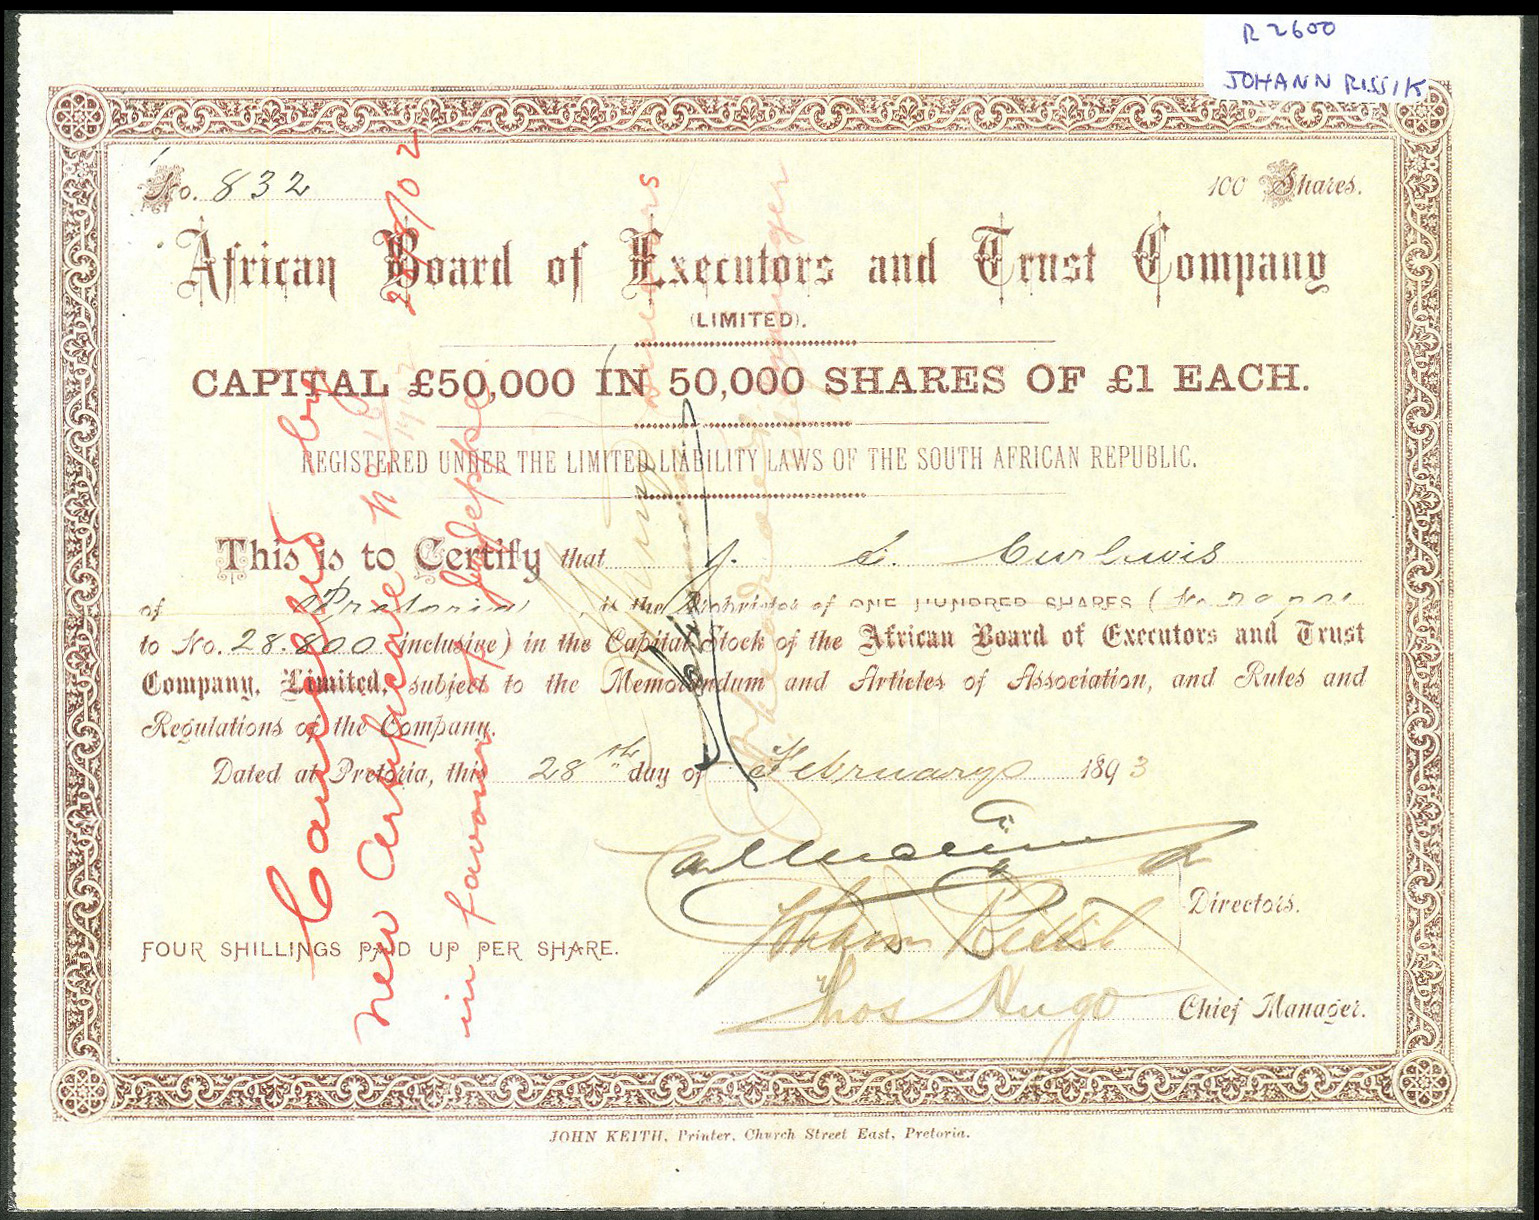 R 2600
JOHANN RISSIK
No. 832
100 Shares.
African Board of Executors and Trust Company
(LIMITED).
CAPITAL £50,000 IN 50,000 SHARES OF £1 EACH.
REGISTERED UNDER THE LIMITED LIABILITY LAWS OF THE SOUTH AFRICAN REPUBLIC.
This is to Certify that J. L. Curlewis
of Pretoria, is the Proprietor of ONE HUNDRED SHARES (No.
to No. 28.800 inclusive) in the Capital Stock of the African Board of Executors and Trust
Company, Limited, subject to the Memorandum and Articles of Association, and Rules and
Regulations of the Company.
Dated at Pretoria, this 28th day of February 1893
Directors.
Johann Rissik
FOUR SHILLINGS PAID UP PER SHARE.
Thos Hugo Chief Manager.
JOHN KEITH, Printer, Church Street East, Pretoria.
Cancelled by
new Certificate No
in favour of